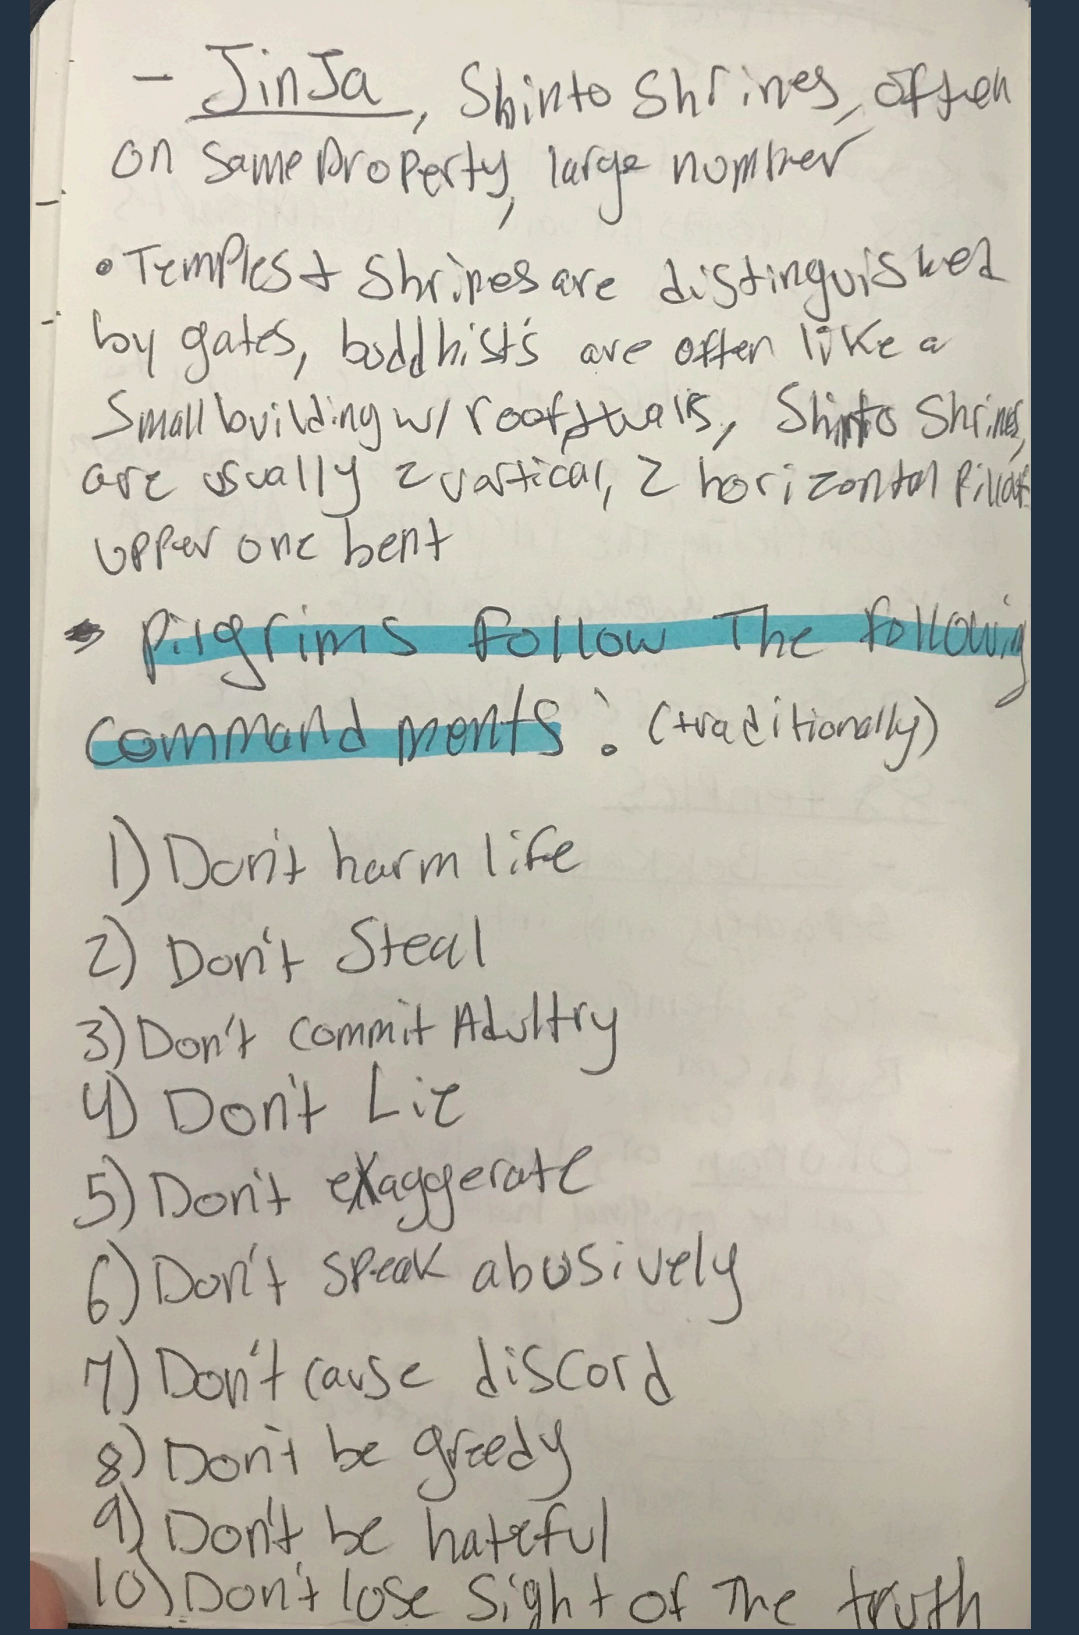 - JinJa, Shinto Shrines, often
on same property, large number
• Temples + Shrines are distinguished
by gates, buddhists are often like a
Small building w/ roof + walls, Shinto Shrines
are usually 2 vertical, 2 horizontal Pillars
upper one bent
Pilgrims follow The following
commandments: (traditionally)
1) Don't harm life
2) Don't Steal
3) Don't commit Adultry
4) Don't Lie
5) Don't exaggerate
6) Don't speak abusively
7) Don't cause discord
8) Don't be greedy
9) Don't be hateful
10) Don't lose Sight of The truth